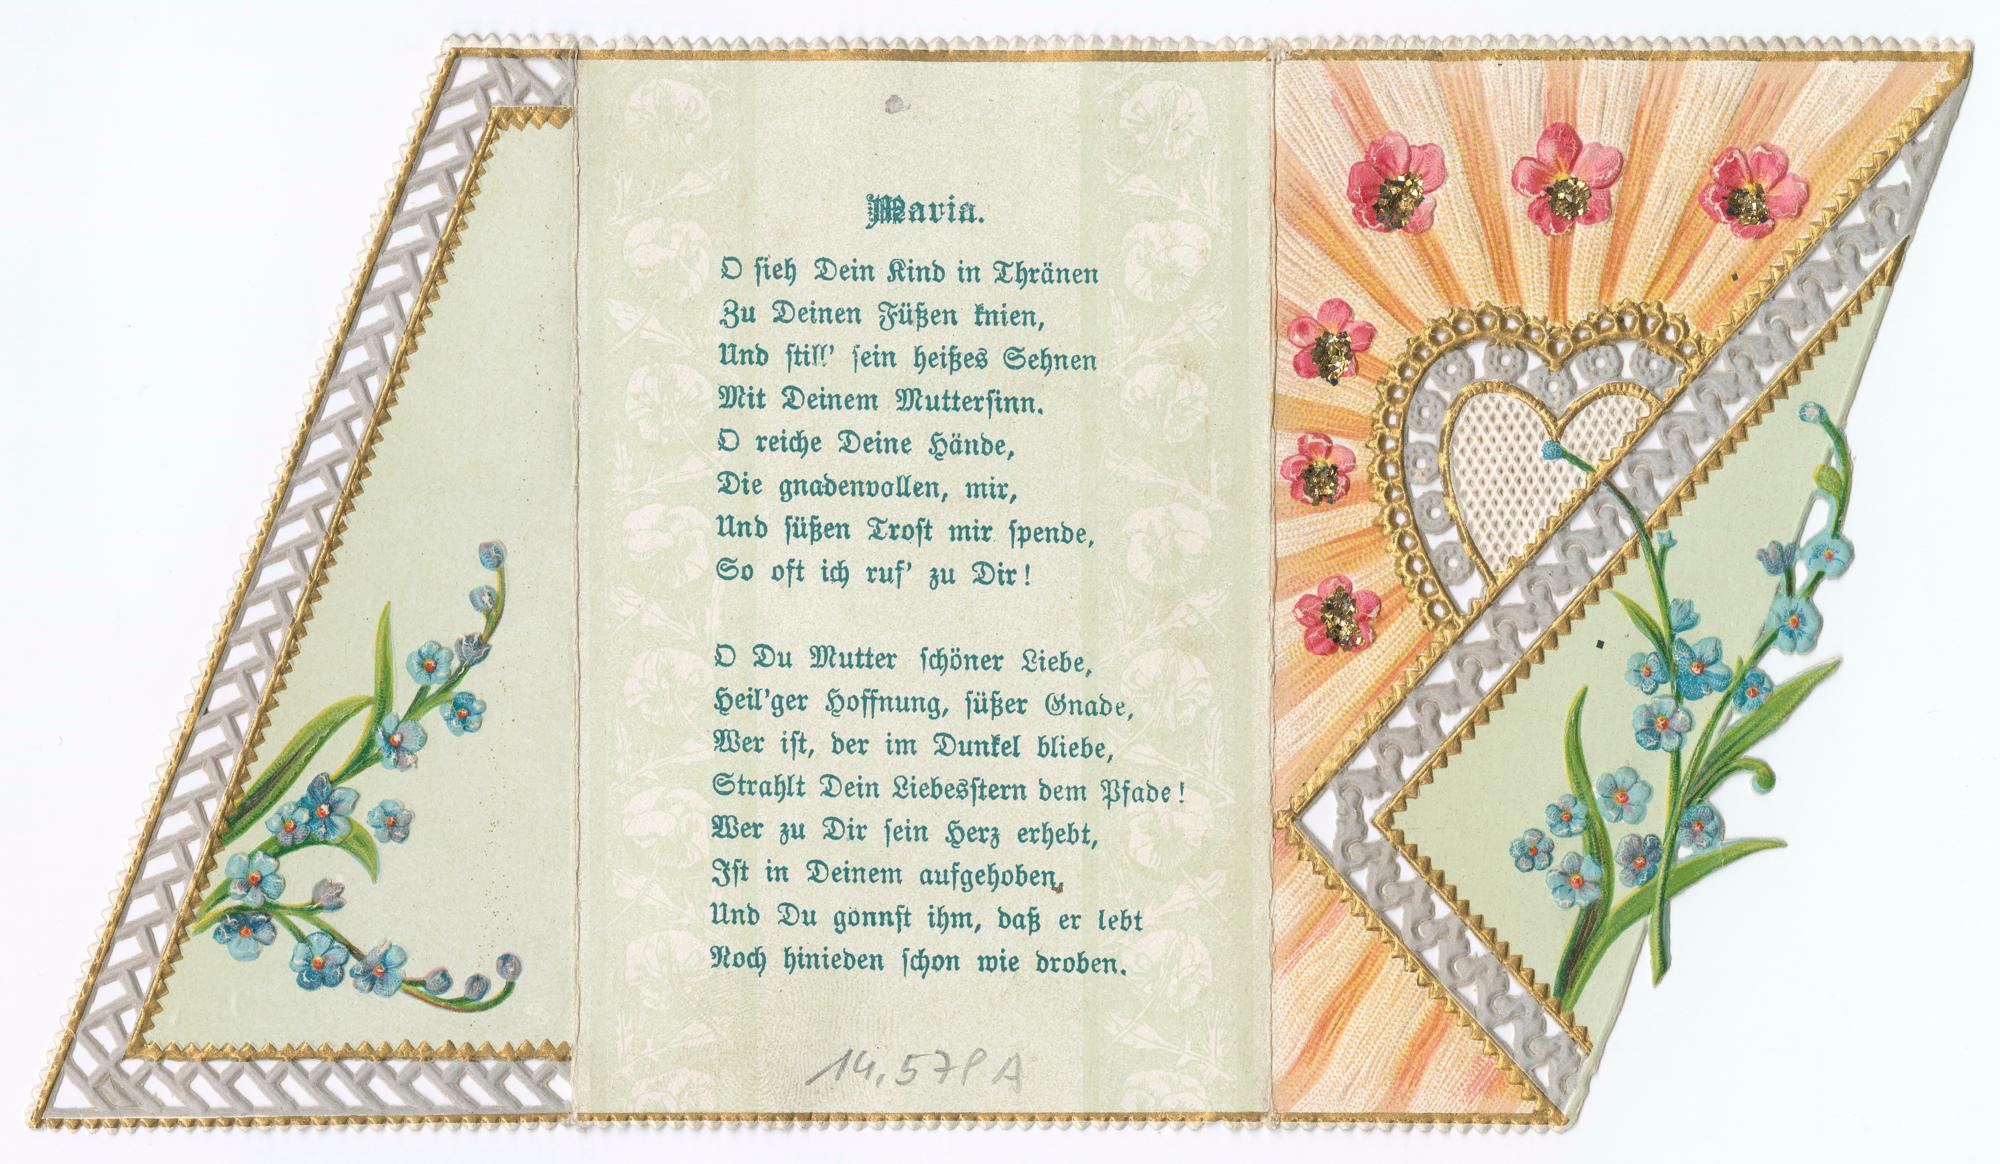 Maria.
O sieh Dein Kind in Thränen
Zu Deinen Füßen knien,
Und still' sein heißes Sehnen
Mit Deinem Muttersinn.
O reiche Deine Hände,
Die gnadenvollen, mir,
Und süßen Trost mir spende,
So oft ich ruf' zu Dir!
O Du Mutter schöner Liebe,
Heil'ger Hoffnung, süßer Gnade,
Wer ist, der im Dunkel bliebe,
Strahlt Dein Liebesstern dem Pfade!
Wer zu Dir sein Herz erhebt,
Ist in Deinem aufgehoben,
Und Du gönnst ihm, daß er lebt
Noch hinieden schon wie droben.